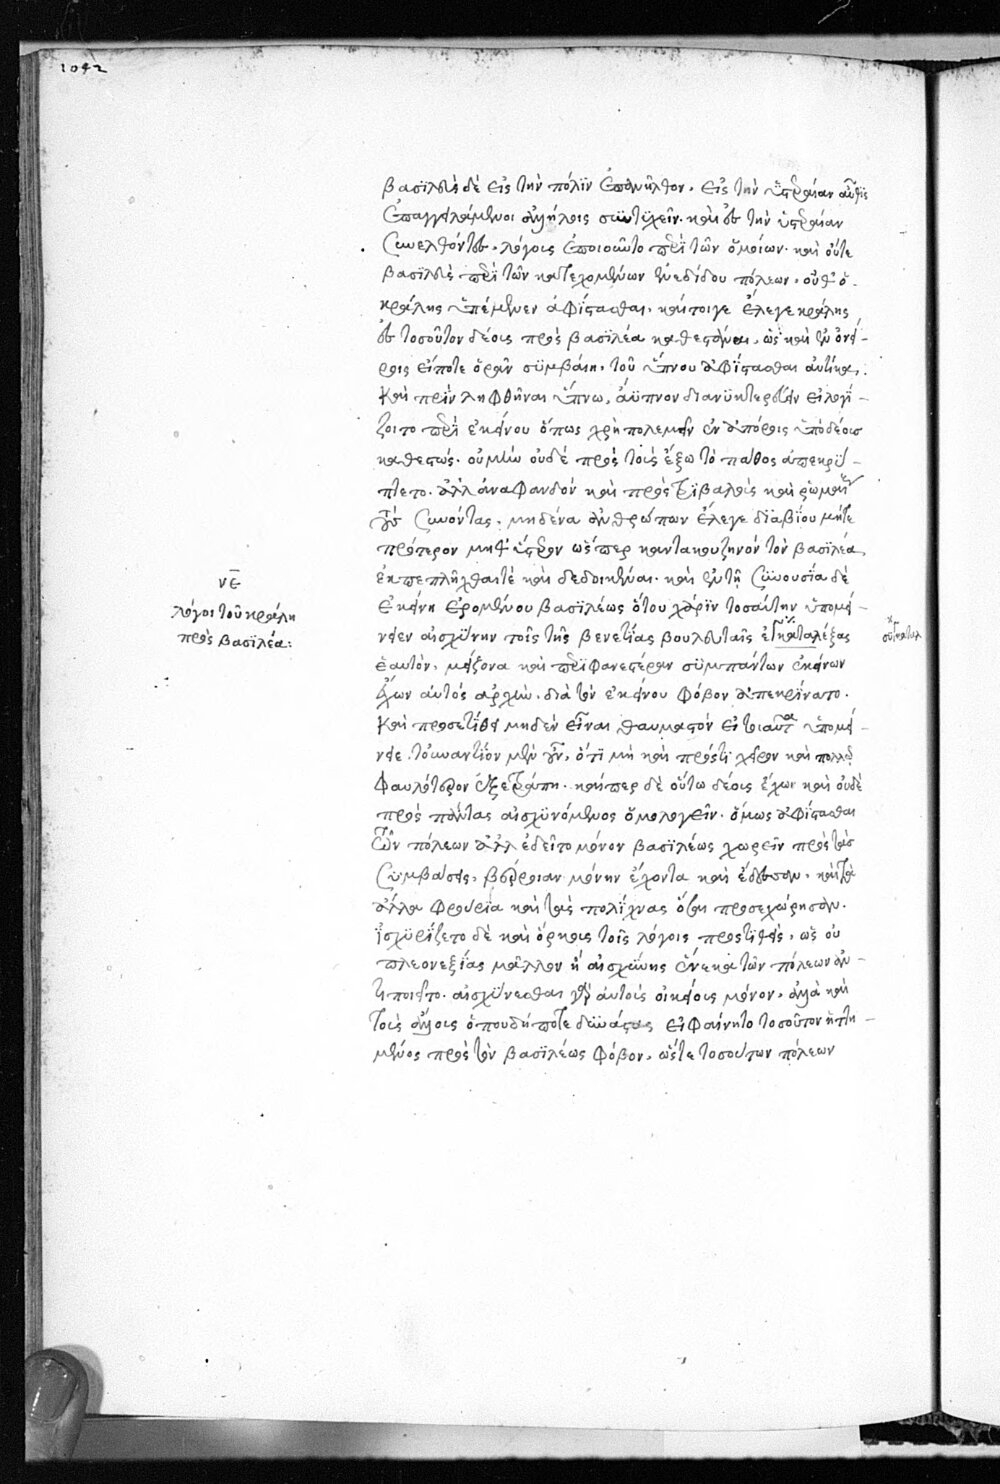 1042
βασιλεὺς δὲ εἰς τὴν πόλιν ἐπανῆλθον. εἰς τὴν ὑστεραίαν αὖθις
ἐπαγγειλάμενοι ἀλλήλοις συντυχεῖν. καὶ ἐς τὴν ὑστεραίαν
συνελθόντες, λόγους ἐποιοῦντο περὶ τῶν ὁμοίων. καὶ οὔτε
βασιλεὺς περὶ τῶν κατεχομένων ἐνεδίδου πόλεων, οὔθ' ὁ
κράλης ὑπέμενεν ἀφίστασθαι. καίτοιγε ἔλεγε κράλης
ἐς τοσοῦτον δέους πρὸς βασιλέα καθεστάναι, ὡς καὶ ἐν ὀνεί-
ροις εἴποτε ὁρᾶν συμβαίη, τοῦ ὕπνου ἀφίστασθαι αὐτίκα.
καὶ πρὶν ληφθῆναι ὕπνῳ, ἄϋπνον διανυκτερεύειν εἰ λογί-
ζοιτο περὶ ἐκείνου ὅπως χρὴ πολεμεῖν ἐν ἀπόροις ὑπὸ δέους
καθεστώς. οὐ μὴν οὐδὲ πρὸς τοὺς ἔξω τὸ πάθος ἀπεκρύ-
πτετο. ἀλλ' ἀναφανδὸν καὶ πρὸς τριβαλοὺς καὶ ῥωμαίους
τοὺς συνόντας, μηδένα ἀνθρώπων ἔλεγε διαβίου μήτε
πρότερον μήθ' ὕστερον ὥσπερ καντακουζηνὸν τὸν βασιλέα
ἐκπεπλῆχθαί τε καὶ δεδοικέναι. καὶ ἐν τῇ συνουσίᾳ δὲ
ἐκείνῃ ἐρομένου βασιλέως ὅτου χάριν τοσαύτην ὑπομεί-
νειεν αἰσχύνην τοῖς τῆς βενετίας βουλευταῖς ἐγκαταλέξας
ἑαυτὸν, μείζονα καὶ περιφανεστέραν συμπάντων ἐκείνων
ἔχων αὐτὸς ἀρχὴν. διὰ τὸν ἐκείνου φόβον ἀπεκρίνατο.
καὶ προσετίθει μηδὲν εἶναι θαυμαστὸν εἰ τοιαῦτα ὑπομεί-
νειε. τοὐναντίον μὲν οὖν, ὅτι μὴ καὶ πρός τι χεῖρον καὶ πολλῷ
φαυλότερον ἐξετράπη. καίπερ δὲ οὕτω δέους ἔχων καὶ οὐδὲ
πρὸς πάντας αἰσχυνόμενος ὁμολογεῖν. ὅμως ἀφίστασθαι
τῶν πόλεων ἀλλ' ἐδεῖτο μόνον βασιλέως χωρεῖν πρὸς τὰς
συμβάσεις, βέῤῥοιαν μόνην ἔχοντα καὶ ἔδεσσαν, καὶ τὰ
ἄλλα φρούρια καὶ τὰς πολίχνας ὅσαι προσεχώρησαν.
ἰσχυρίζετο δὲ καὶ ὅρκους τοῖς λόγοις προστιθεὶς, ὡς οὐ
πλεονεξίας μᾶλλον ἢ αἰσχύνης ἕνεκα τῶν πόλεων ἀν-
τιποιεῖτο. αἰσχύνεσθαι γὰρ αὐτοὺς οἰκείους μόνον, ἀλλὰ καὶ
τοὺς ἄλλους ὁπουδήποτε δυνάστας εἰ φαίνητο τοσοῦτον ἡττη-
μένος πρὸς τὸν βασιλέως φόβον, ὥστε τοσούτων πόλεων
νε
λόγοι τοῦ κράλη
πρὸς βασιλέα: